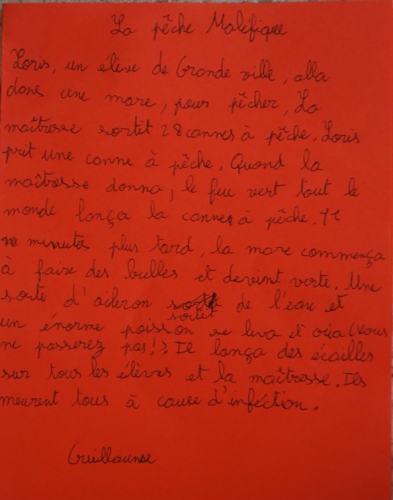 La pêche Maléfique
Loris, un élève de Grande ville, alla
dans une mare, pour pêcher, La
maîtresse sortit 28 cannes à pêche. Loris
prit une canne à pêche. Quand la
maîtresse donna, le feu vert tout le
monde lança la cannes à pêche.
minutes plus tard, la mare commença
à faire des bulles et devint verte. Une
sorte d'aileron sortit de l'eau et
un énorme poisson se leva et cria (Vous
ne passerez pas!> Il lança des écailles
sur tous les élèves et la maîtresse. Ils
meurent tous à cause d'inféction.
Guillaume